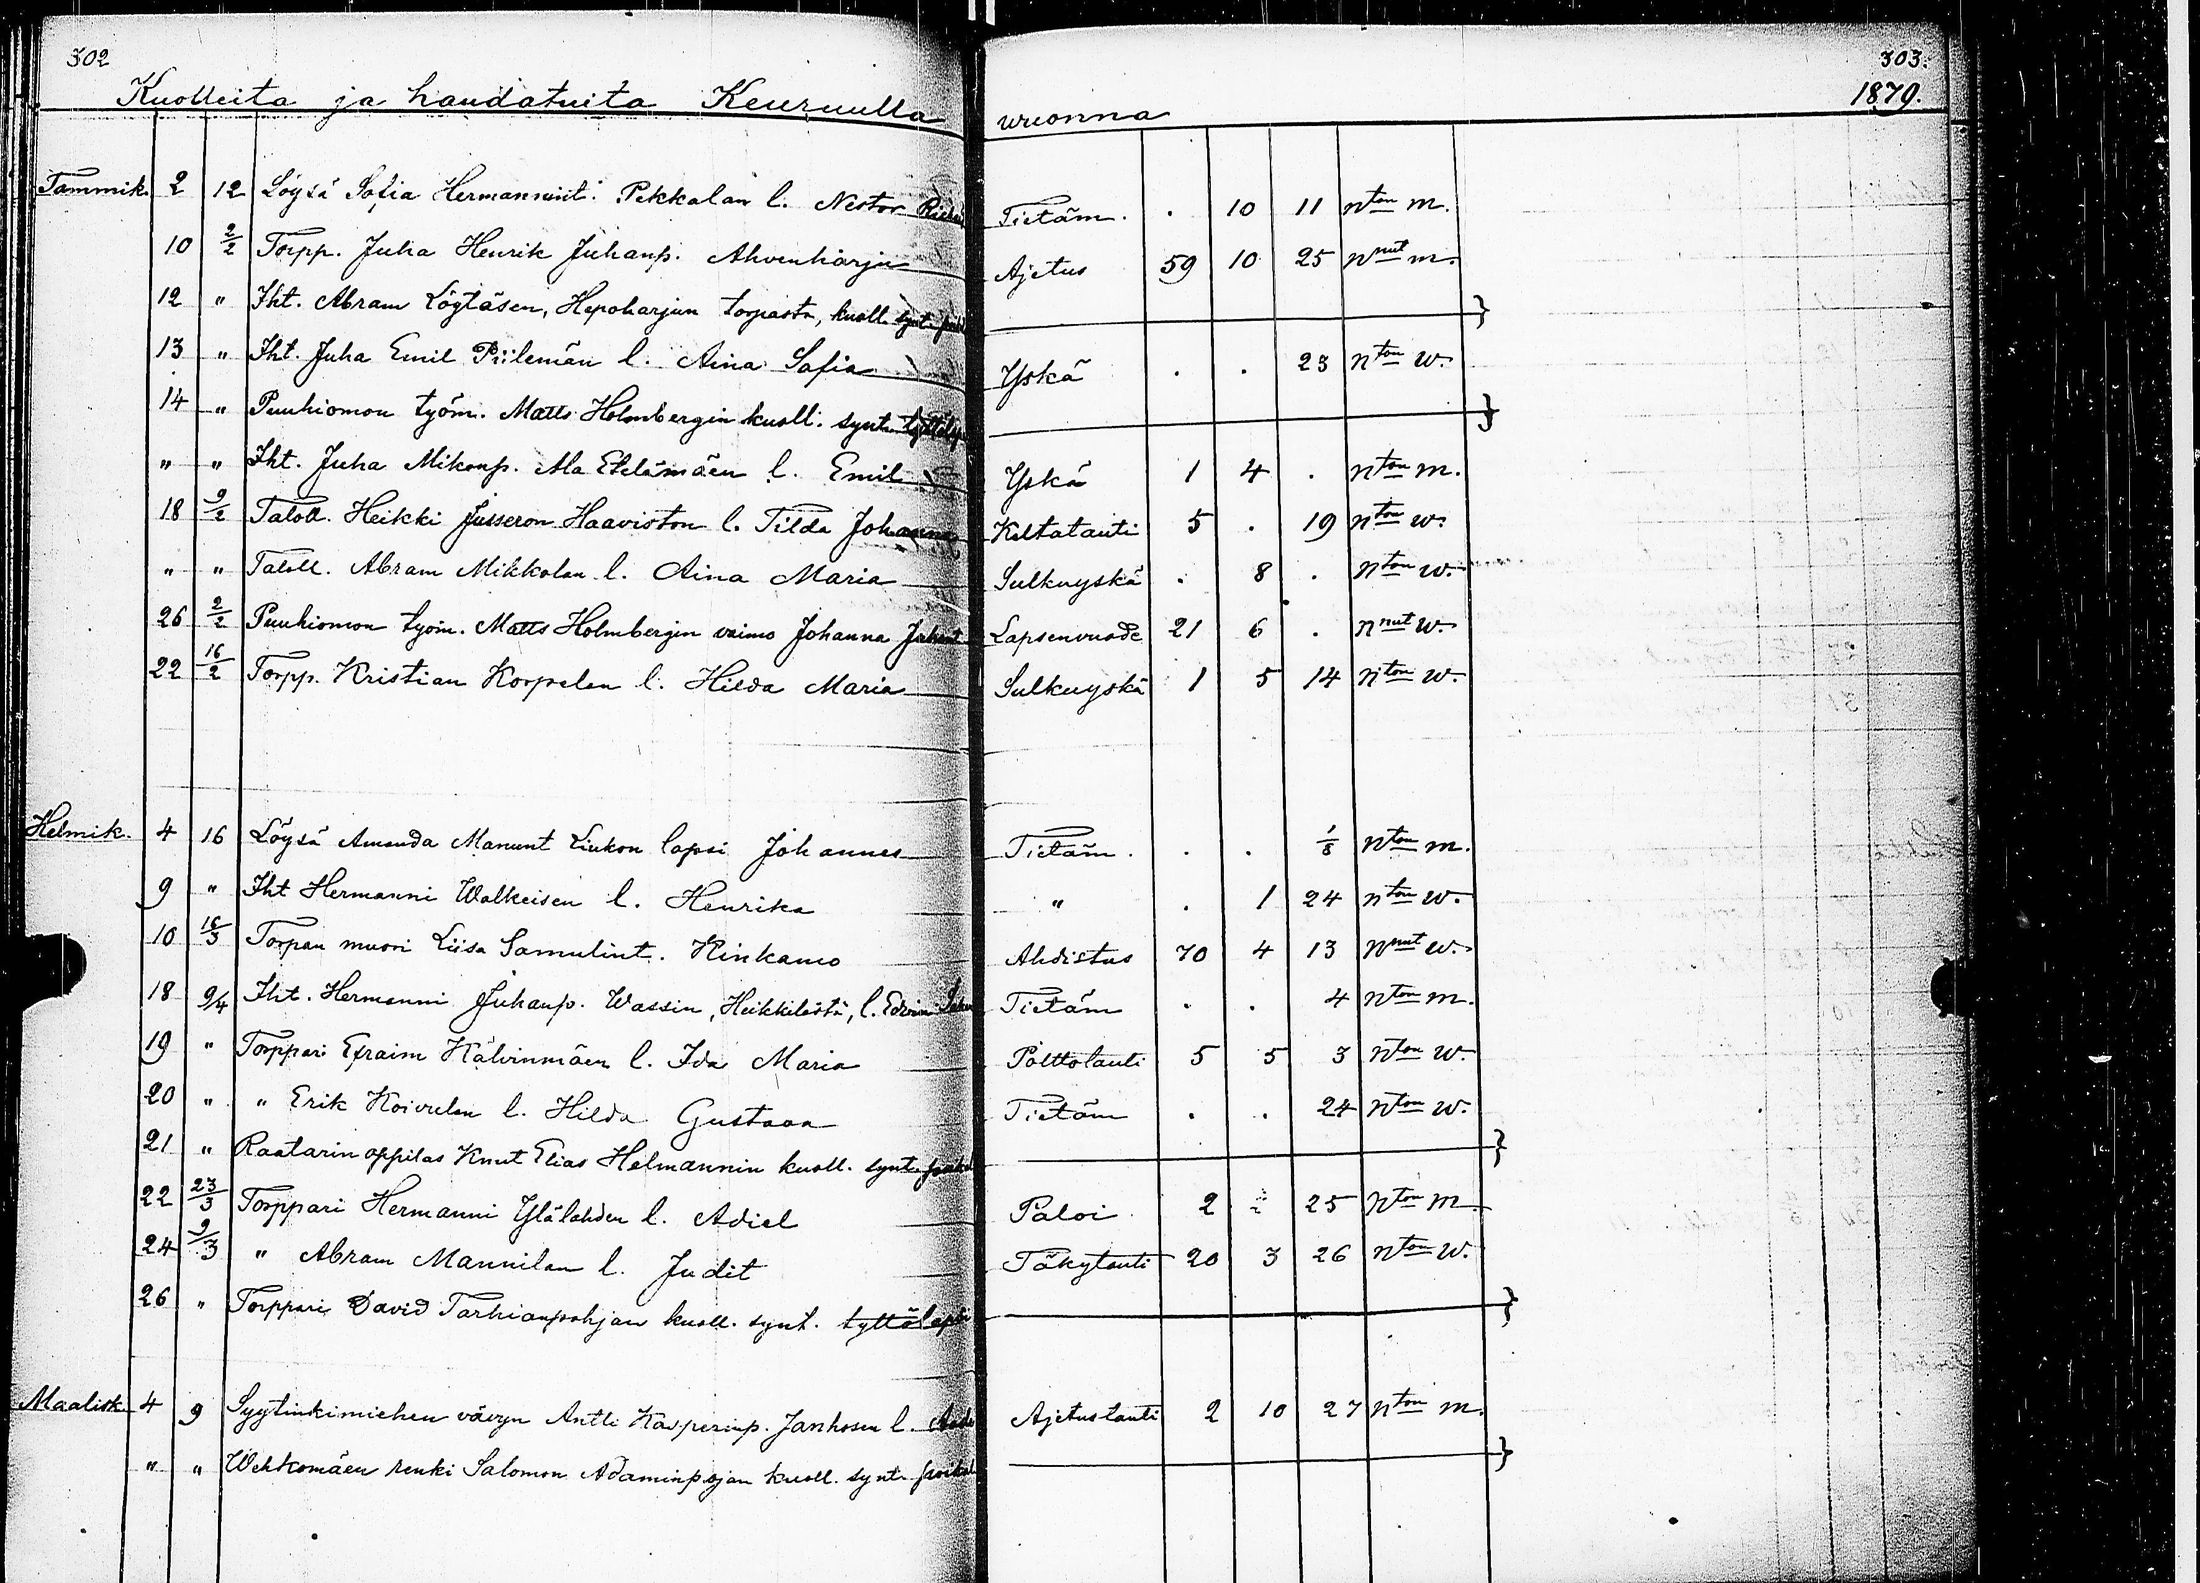 302
303.
Kuolleita ja haudatuita Keuruulla wuonna 1879.
Tammik. 2 12 Löysä Sofia Hermannint. Pekkalan l. Nestor Tietäm. . 10 11 nton m.
10 2/2 Torpp. Juha Henrik Juhanp. Ahvenharju Ajetus 59 10 25 nnut m.
12 " Iht. Abram Löytäsen, Hepoharjun torpasta, kuoll. synt.
13 " Iht. Juha Emil Piilemän l. Aina Sofia Yskä . . 23 nton w.
14 " Puuhiomon työm. Matts Holmbergin kuoll. synt.
" " Iht. Juha Mikonp. Ala Etelämäen l. Emil Yskä 1 4 . nton m.
18 9/2 Taloll. Heikki Jusseron Haaviston l. Tilda Johanna Keltatauti 5 . 19 nton w.
" " Taloll. Abram Mikkolan l. Aina Maria Sulkuyskä . 8 . nton w.
26 2/2 Puuhiomon työm. Matts Holmbergin vaimo Johanna Lapsenvuode 21 6 . nnut w.
22 16/2 Torpp. Kristian Korpelan l. Hilda Maria Sulkuyskä 1 5 14 nton w.
Helmik. 4 16 Löysä Amanda Manunt Liukon lapsi Johannes Tietäm. . . 1/8 nton m.
9 " Iht Hermanni Walkeisen l. Henrika " . 1 24 nton w.
10 16/3 Torpan muori Liisa Samulint. Hinkamo Ahdistus 70 4 13 nnut w.
18 9/4 Iht. Hermanni Juhanp. Wassin, Heikkilästä, l. Tietäm . . 4 nton m.
19 " Torppari Efraim Kälvinmäen l. Ida Maria Polttotauti 5 5 3 nton w.
20 " " Erik Koivulan l. Hilda Gustava Tietäm . . 24 nton w.
21 " Raatarin oppilas Knut Elias Helmannin kuoll. synt.
22 23/3 Torppari Hermanni Ylälahden l. Adiel Paloi 2 25 nton m.
24 9/3 " Abram Mannilan l. Judit Täkytauti 20 3 26 nton w.
26 " Torppari David Tarhianpohjan kuoll. synt. tyttölapsi
Maalisk 4 9 Syytinkimiehen vävyn Antti Kasperinp. Janhosen l. Ajetustauti 2 10 27 nton m.
" " Wehkomäen renki Salomon Adaminpojan kuoll. synt.